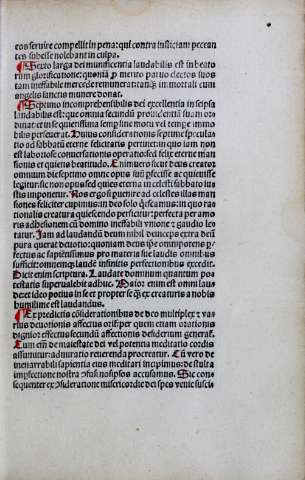 eos seruire compellit in pena: qui contra iusticiam peccan
tes subesse nolebant in culpa.
Sexto larga dei munificentia laudabilis est in beato
rum glorificatione: quoniã ꝓ meritо paruo electos suos
tam ineffabili mercede remunerat: итаqꝫ in mortali cum
angelis sanctis munere donat.
Septimo incomprehensibilis dei excellentia in seipsa
laudabilis est: que omnia secundũ prouidentiã suam ordi
nat: et in se quietissima semp sine motu vel tempe immo
bilis perseuerat. Huius considerationis septime specula
tio ad sabbatũ eterne felicitatis pertinet: in quo iam non
est laboriose conuersationis operatio: sed felix eterne man
sionis et quietis beatitudo. Enimuero sicut deus creator
omnium die septimo omne opus suũ pfecisse ac quieuisse
legitur: sic non opus sed quies eterna in celesti sabbato iu
stis imponetur. Nos ergo si puenire ad celestes illas man
siones feliciter cupimus: in deo solo quiescamus: in quo ra
tionalis creatura quiescendo perficitur: perfecta per amo
ris adhesionem cũ domino ineffabili vnione gaudio leta
tur. Iam ad laudandũ deum nihil deuceps extra deũ
pura querat deuotio: quoniam deus ipse omnipotens p
fectus ac sapientissimus pro materia sue laudis omnibus
sufficit: omnemqꝫ laudẽ infinitis perfectionibus excedit.
Dicit enim scriptura. Laudate dominum quantum pos
testatis superualebit adhuc. Maior enim est omni lau
de: et ideo potius in se et propter se qꝫ ex creaturis a nobis
humilime est laudandus.
Ex predictis cõsiderationibus de deo multiplex: va
rius deuotionis affectus orif: per quem etiam orationis
dignior effectus secundũ affectionis desiderium generaf.
Cum eni de maiestate dei vel potentia meditatio cordis
assumitur: admiratio reuerenda procreatur. Cũ vero de
inenarrabili sapientia eius meditari incipimus: de stulta
impfectione nostra cõfusi nosipsos accusamus. Sic con
sequenter ex cõsideratione misericordie dei spes venie susci